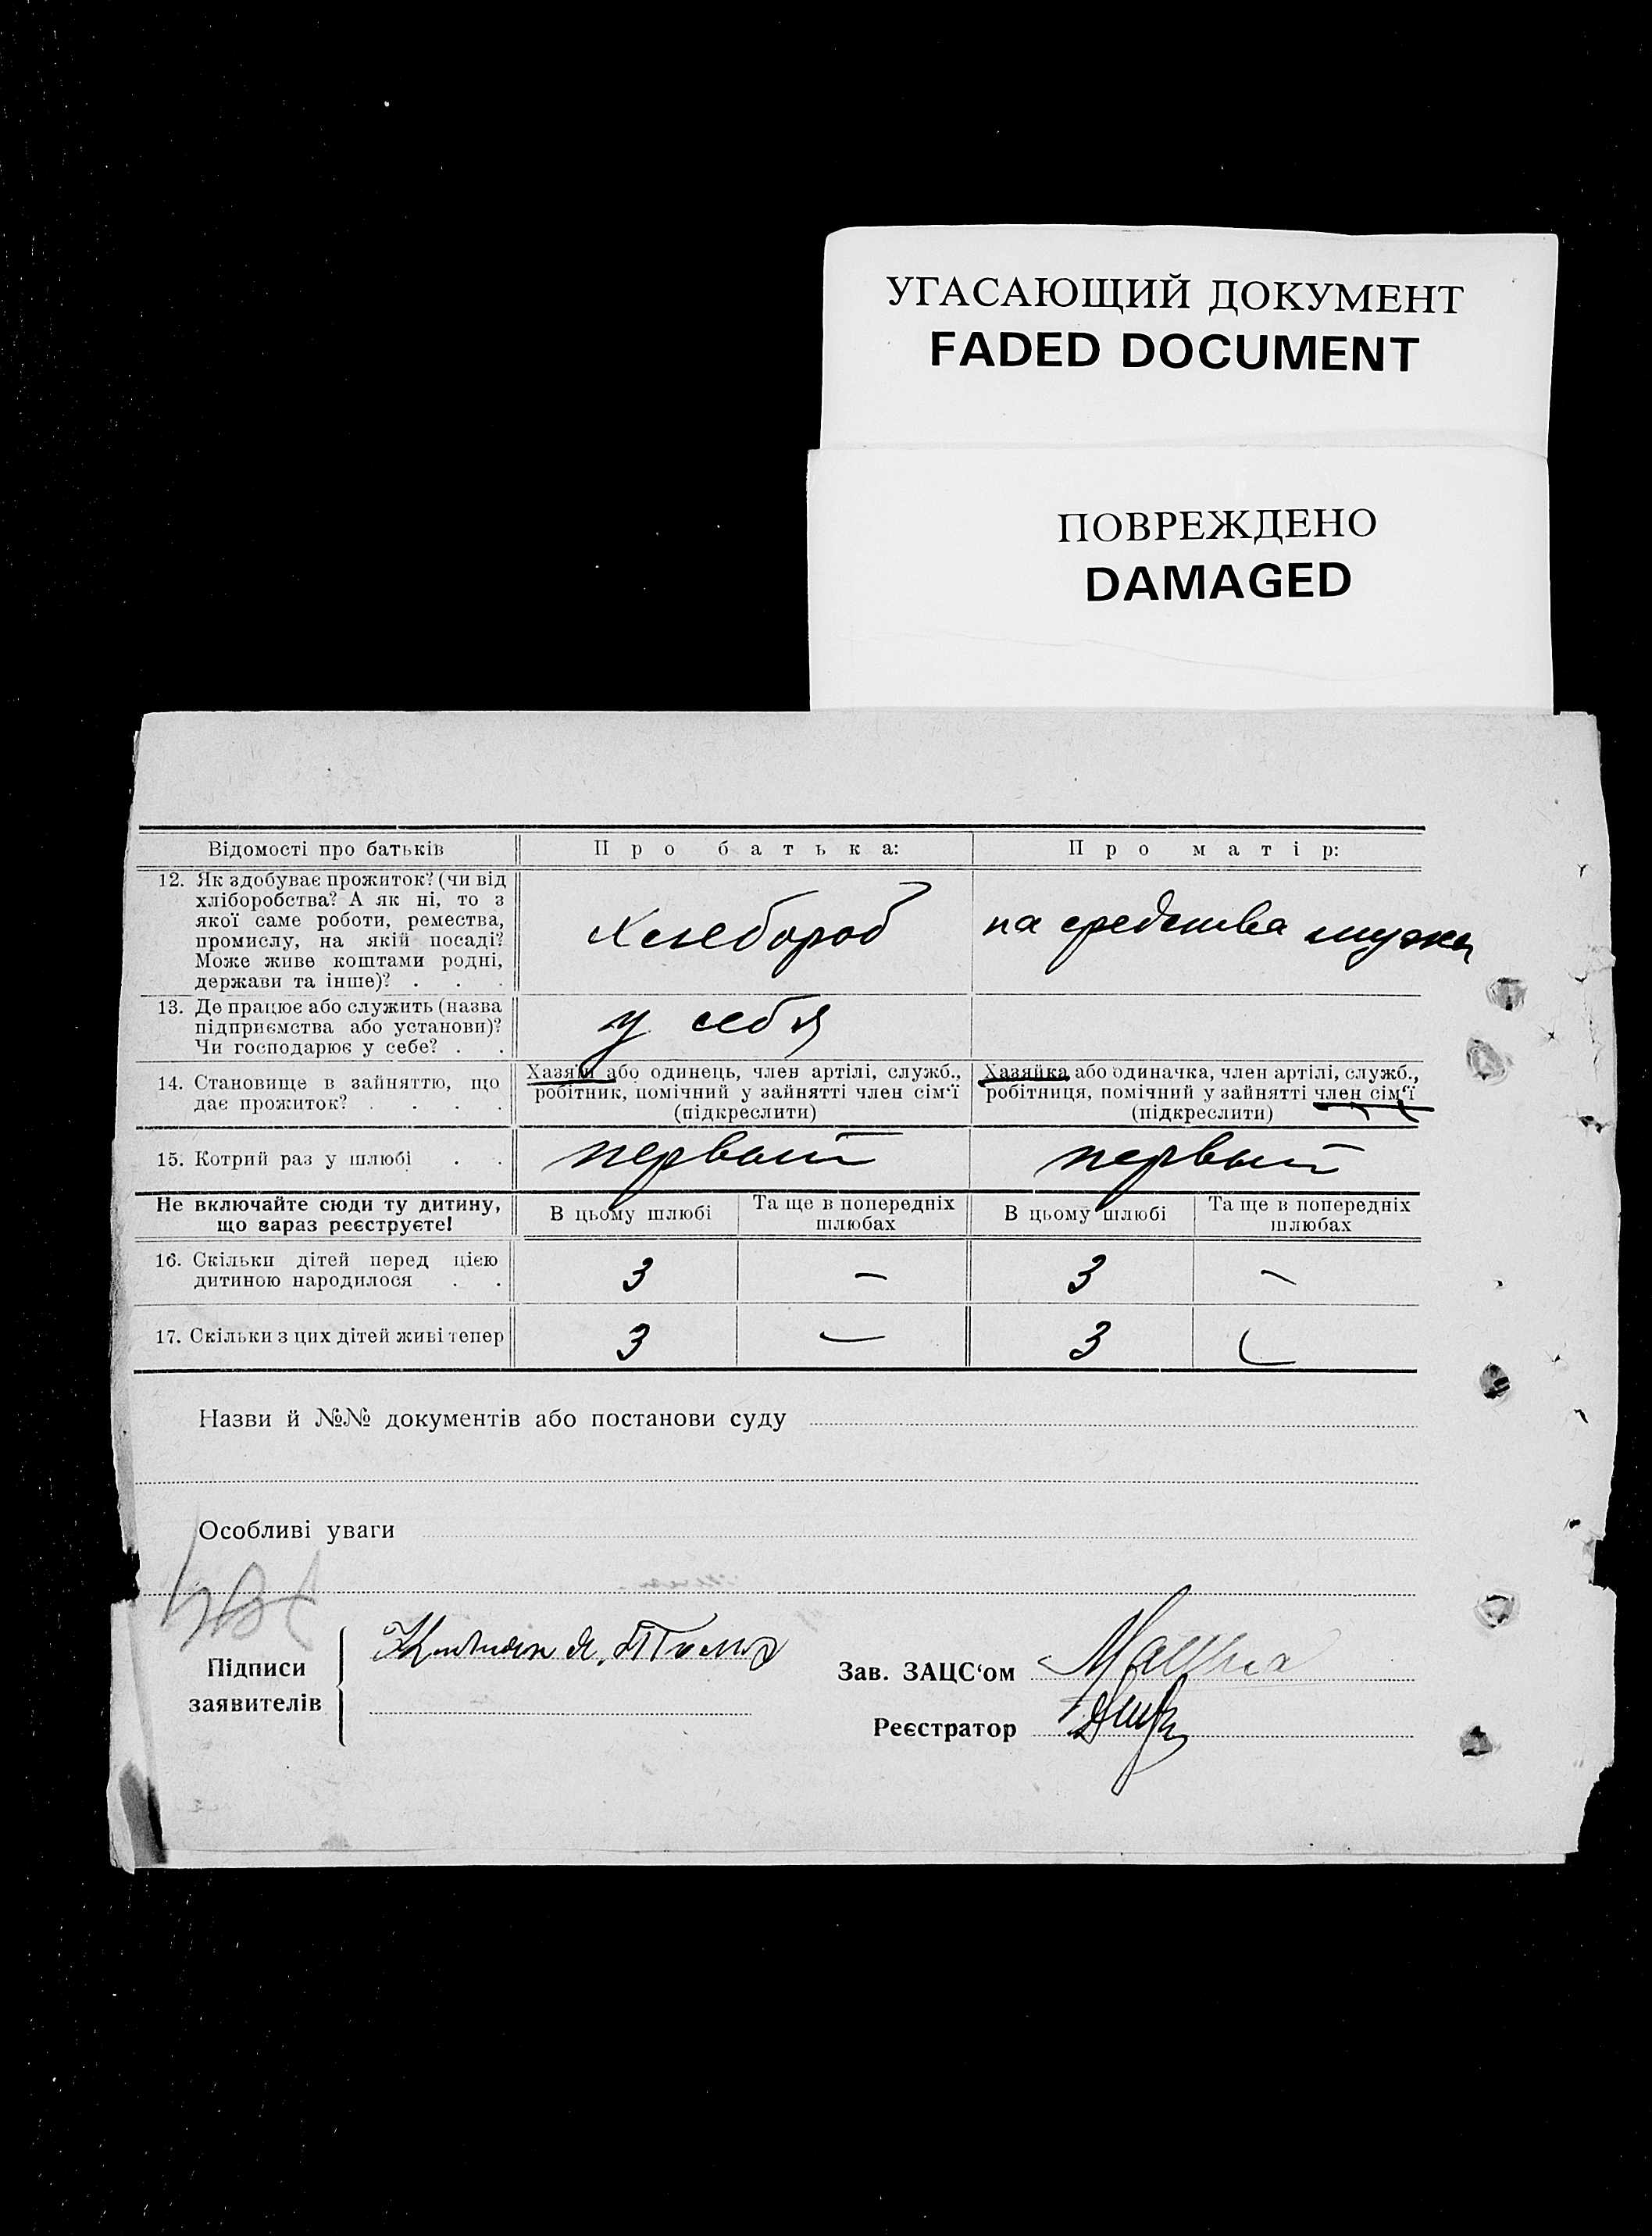 УГАСАЮЩИЙ ДОКУМЕНТ
FADED DOCUMENT
ПОВРЕЖДЕНО
DAMAGED
Відомості про батьків
Про батька:
Про матір:
12. Як здобуває прожиток? (чи від
хліборобства? А як ні, то з
якої саме роботи, ремества,
промислу, на якій посаді?
Може живе коштами родні,
держави та інше)? . . .
Хлебороб
на средства мужа
13. Де працює або служить (назва
підприємства або установи)?
Чи господарює у себе? . .
у себя
14. Становище в зайняттю, що
дає прожиток? . . . .
Хазяїн або одинець, член артілі, служб.,
робітник, помічний у зайнятті член сім‘ї
(підкреслити)
Хазяйка або одиначка, член артілі, служб.,
робітниця, помічний у зайнятті член сім‘ї
(підкреслити)
15. Котрий раз у шлюбі . .
первый
первый
Не включайте сюди ту дитину,
що зараз реєструєте!
В цьому шлюбі
Та ще в попередніх
шлюбах
В цьому шлюбі
Та ще в попередніх
шлюбах
16. Скільки дітей перед цією
дитиною народилося . .
3
—
3
—
17. Скільки з цих дітей живі тепер
3
—
3
—
Назви й №№ документів або постанови суду
Особливі уваги
Підписи
заявителів
Зав. ЗАЦС‘ом
Реєстратор